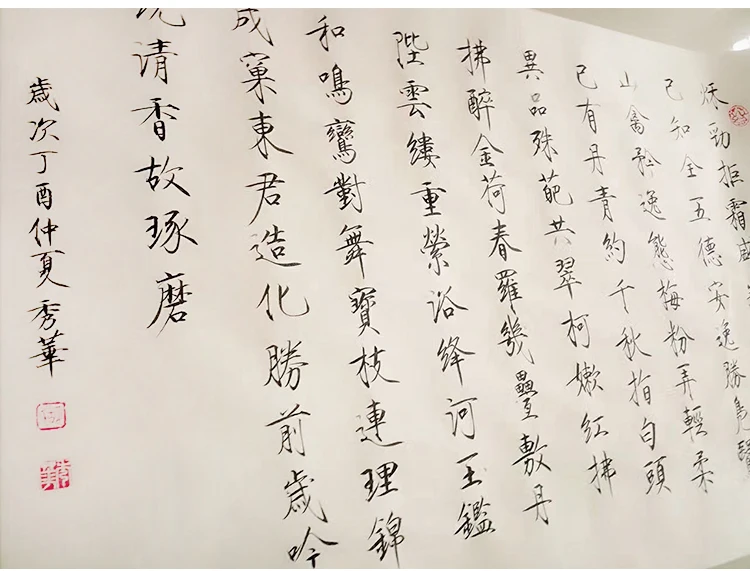 秋勁拒霜盛
已知全五德安逸勝鳧鷖
山禽矜逸態梅粉弄輕柔
已有丹青約千秋指白頭
異品殊葩共翠柯嫩紅拂
拂醉金荷春羅幾疊敷丹
陛雲縷重縈浴絳河玉鑑
和鳴鸞對舞寶枝連理錦
成窠東君造化勝前歲吟
繞清香故琢磨
歲次丁酉仲夏秀華